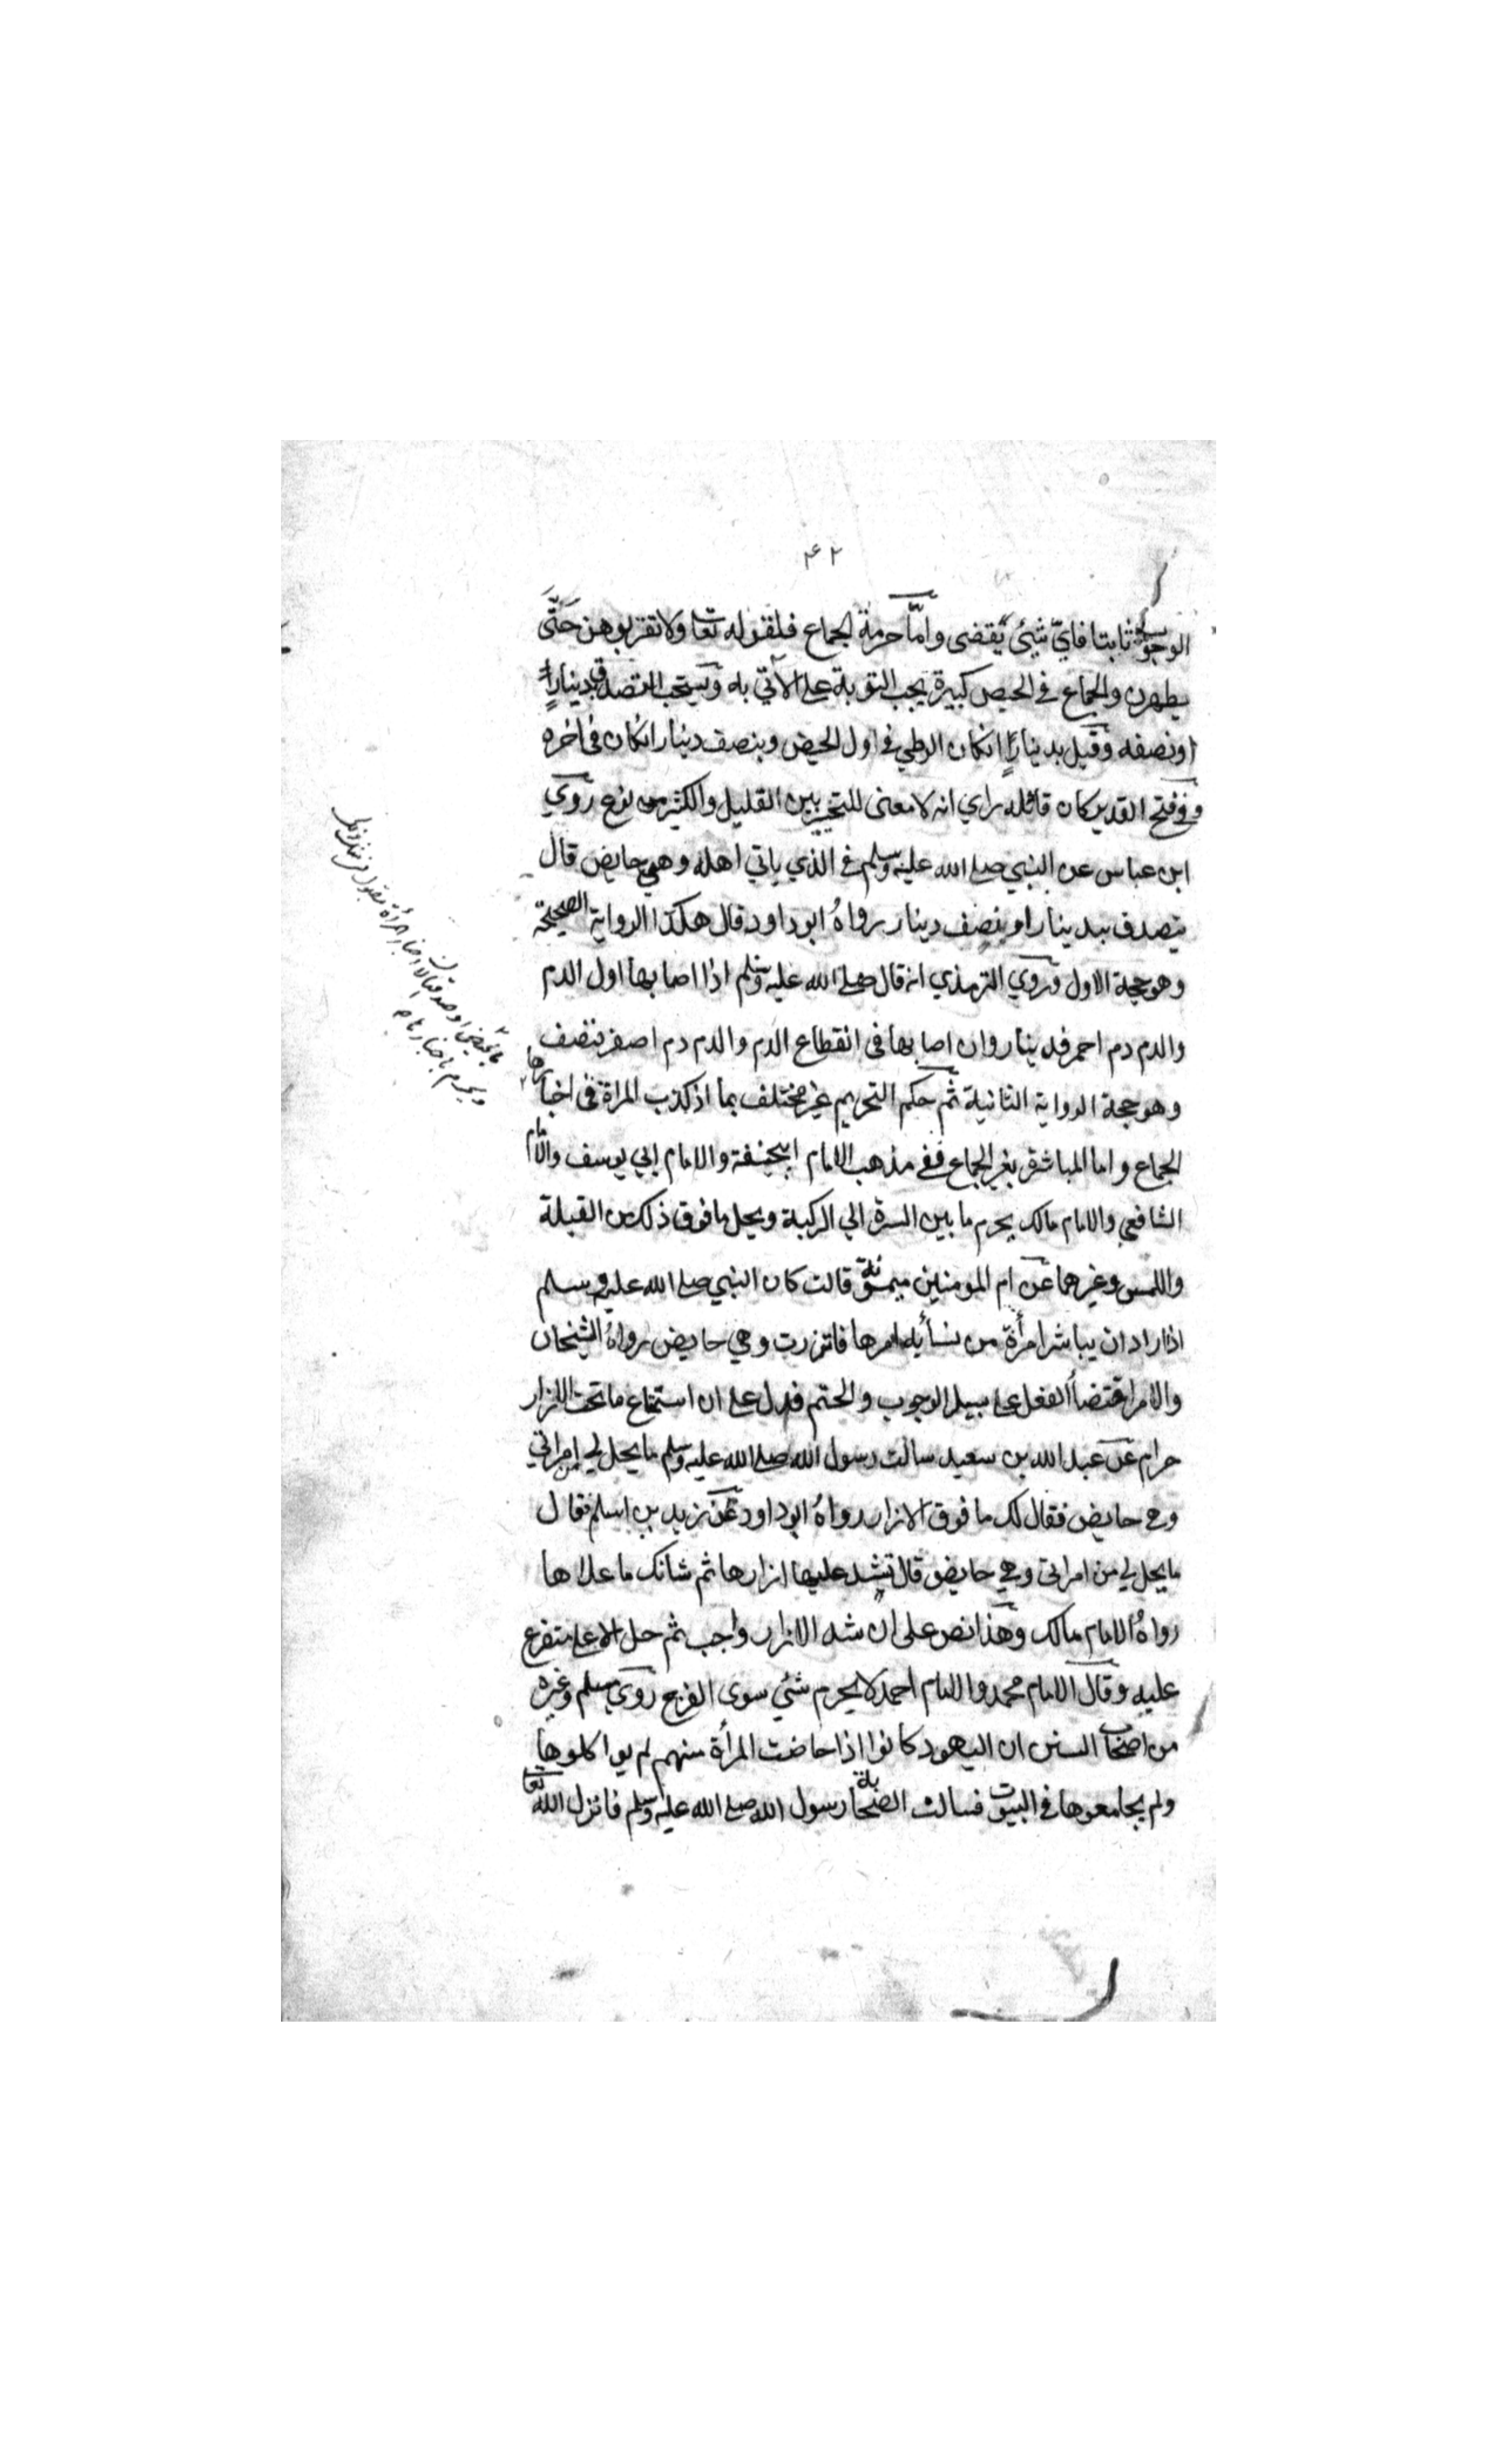 ٤٢
الوجوب ثابتا فاي شيئ يقضى وامّا حرمة الجماع فلقوله تعا ولا تقربوهن حَتّى
يطهرن والجماع في الحيض كبيرة يجب التوبة على الآتي به ويستحب التصدق بدينارٍ
او نصفه وقيل بدينارٍ انكان الوطي في اول الحيض وبنصف دينار انكان في اخره
وفي فتح القدير كان قائله راي انه لا معنى للتخيير بين القليل والكثير من نوع روي
ابن عباس عن النبي صلى الله عليه وسلم في الذي ياتي اهله وهي حايض قال
يتصدق بدينار او بنصف دينار رواهُ ابو داود قال هكذا الرواية الصحيحة
وهو حجة الاول وروي الترمذي انه قال صلى الله عليه وسلم اذا اصابها اول الدم
والدم دم احمر فدينار وان اصابها في انقطاع الدم والدم دم اصفر فنصف
وهو حجة الرواية الثانية ثم حكم التحريم غير مختلف بما اذ كذب المراة في اخبارها
الجماع واما المباشرة بغير الجماع ففي مذهب الامام ابيحنيفة والامام ابي يوسف والامام
الشافعي والامام مالك يحرم ما بين السرة الي الركبة ويحل ما فوق ذلك من القبلة
واللمس وغيرهما عن ام المومنين ميمونة قالت كان النبي صلى الله عليه وسلم
اذا اراد ان يباشر امرأة من نسأيه امرها فاتزرت وهي حايض رواهُ الشيخان
والامر اقتضأ الفعل على سبيل الوجوب والحتم فدل على ان استمتاع ما تحت الازار
حرام عن عبد الله بن سعيد سالت رسول الله صلى الله عليه وسلم ما يحل لي من امراتي
وهي حايض فقال لك ما فوق الازار رواهُ ابو داود عن زيد بن اسلم فقال
ما يحل لي من امراتي وهي حايض قال تشد عليها ازارها ثم شانك ما علاها
رواهُ الامام مالك وهذا نص على ان شد الازار واجب ثم حل الاعلى متفرع
عليه وقال الامام محمد والامام احمد لا يحرم شئي سوى الفرج روي مسلم وغيره
من اصحاب السنن ان اليهود كانوا اذا حاضت المرأة منهم لم يواكلوها
ولم يجامعوها في البيوت فسالت الصحابة رسول الله صلى الله عليه وسلم فانزل الله تعا